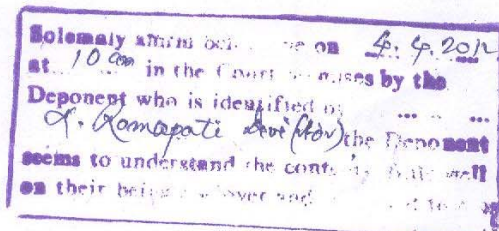 Solemaly affirm before me on 4.4.2012
at 10 am in the Court premises by the
Deponent who is identified by ... ...
L. Romapati Devi (Adv) the Deponent
seems to understand the contents fully well
on their being over and